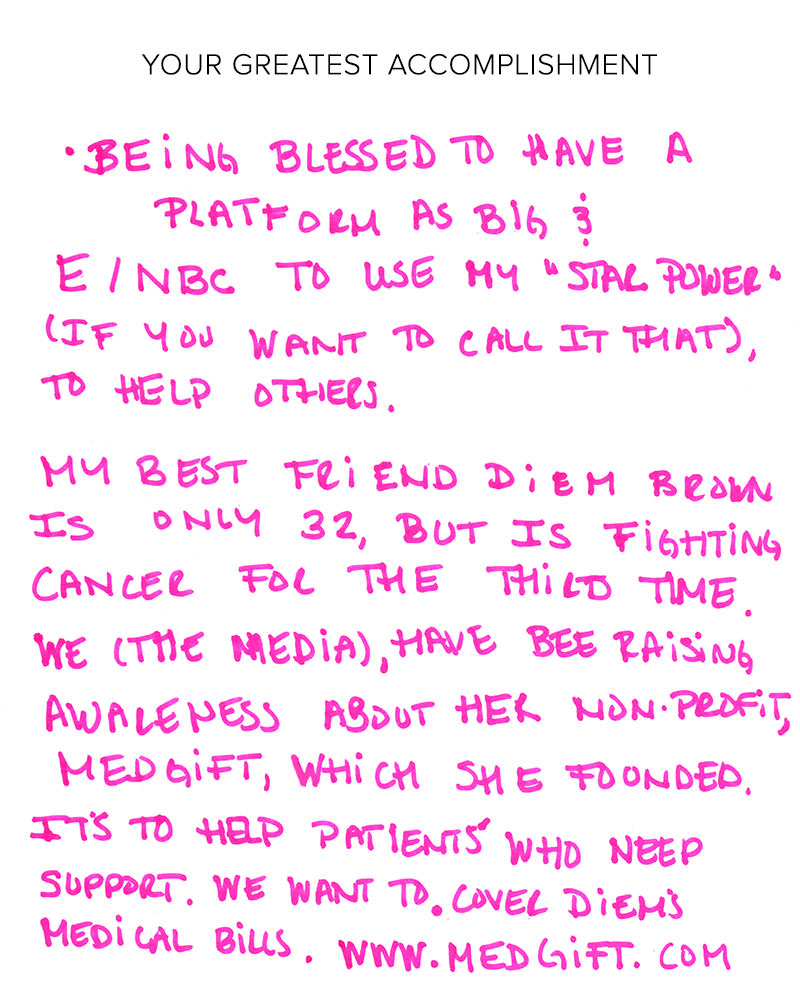 YOUR GREATEST ACCOMPLISHMENT
• BEING BLESSED TO HAVE A
PLATFORM AS BIG &
E/NBC TO USE MY "STAR POWER"
(IF YOU WANT TO CALL IT THAT),
TO HELP OTHERS.
MY BEST FRIEND DIEM BROWN
IS ONLY 32, BUT IS FIGHTING
CANCER FOR THE THIRD TIME.
WE (THE MEDIA), HAVE BEE RAISING
AWARENESS ABOUT HER NON-PROFIT,
MEDGIFT, WHICH SHE FOUNDED.
IT'S TO HELP PATIENTS' WHO NEED
SUPPORT. WE WANT TO. COVER DIEM'S
MEDICAL BILLS. WWW.MEDGIFT.COM